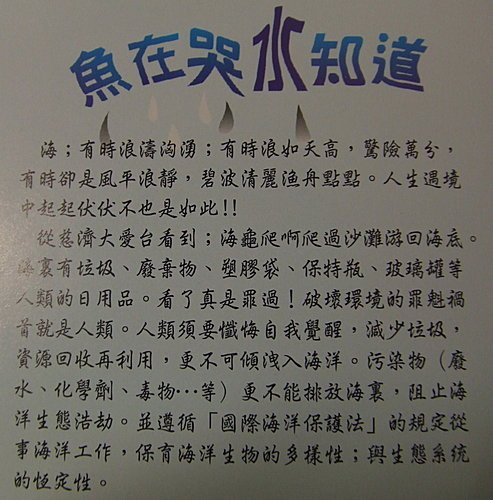 魚在哭水知道
海；有時浪濤洶湧；有時浪如天高，驚險萬分，
有時卻是風平浪靜，碧波清麗漁舟點點。人生遇境
中起起伏伏不也是如此!!
從慈濟大愛台看到；海龜爬啊爬過沙灘游回海底。
海裏有垃圾、廢棄物、塑膠袋、保特瓶、玻璃罐等
人類的日用品。看了真是罪過！破壞環境的罪魁禍
首就是人類。人類須要懺悔自我覺醒，減少垃圾，
資源回收再利用，更不可傾洩入海洋。污染物（廢
水、化學劑、毒物…等）更不能排放海裏，阻止海
洋生態浩劫。並遵循「國際海洋保護法」的規定從
事海洋工作，保育海洋生物的多樣性；與生態系統
的恆定性。